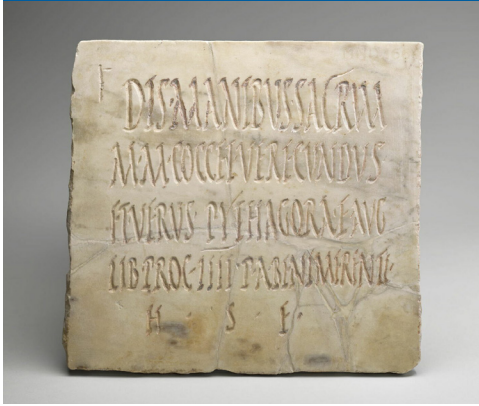 DIS·MANIBUS SACRUM
M·M·COCCEI VERECUNDVS
ET VERUS PYTHAGORAE AUG
LIB PROC·IIII P·A BENE MERENTI·
H · S · E ·